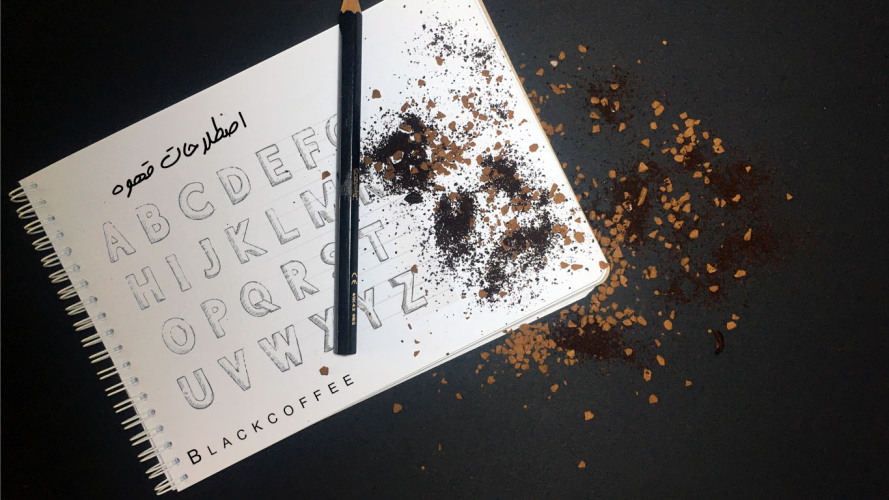 اصطلاحات قهوه
A B C D E F G
H I J K L M
O P Q R S T
U V W Y Y Z
BLACKCOFFEE